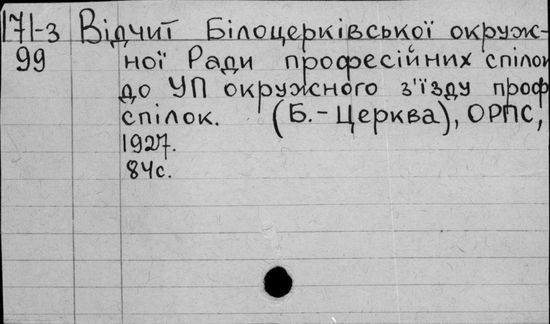 171-3 Відчит Білоцерківської окруж-
99 ної Ради професійних спілок
до УП окружного з'їзду проф
спілок. (Б.-Церква), ОРПС,
1927.
84с.